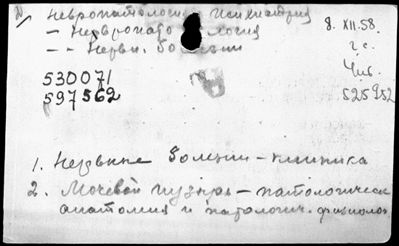 Невропатология Психиатрия
– Невропатология
– – Нервн. болезни
8. XII.58.
530071
597562
525952
1. Нервные болезни – клиника
2. Мочевой пузырь – патологическ
анатомия и патологич. физиолог